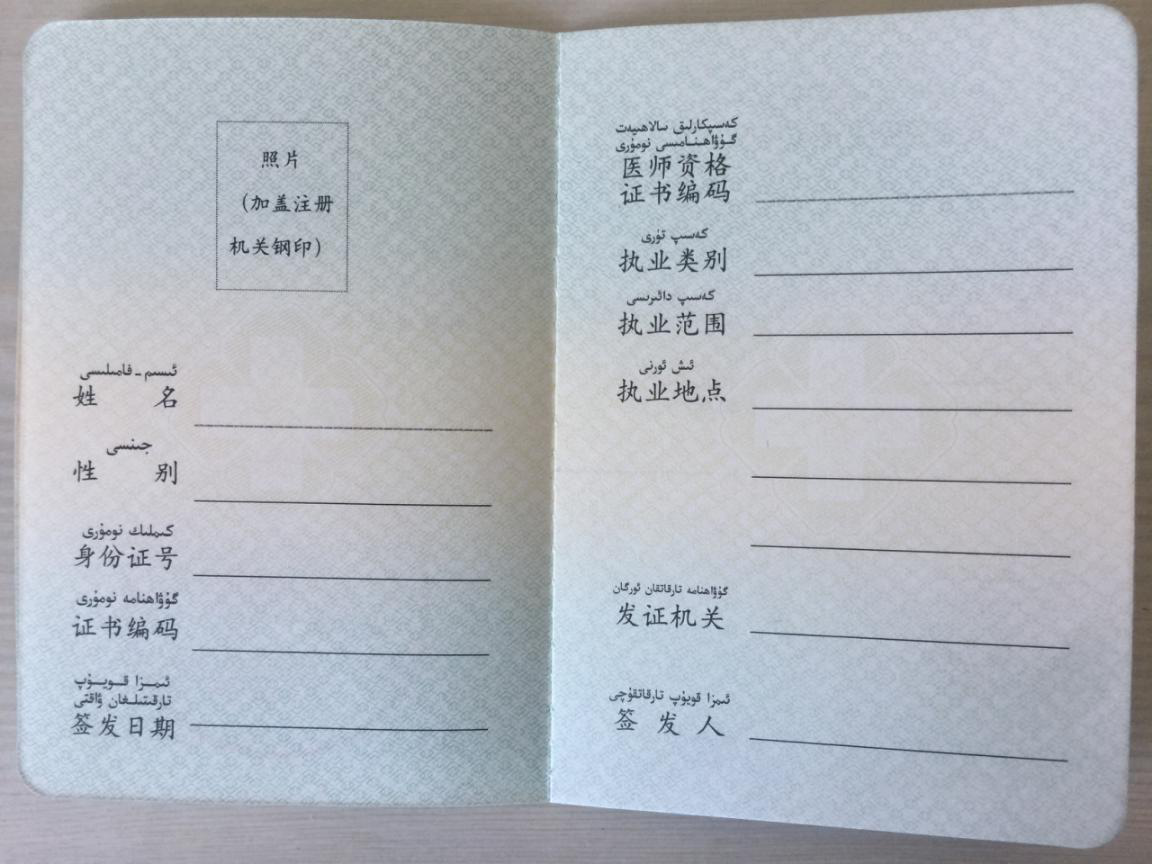 照片
(加盖注册
机关钢印)
ئىسىم - فامىلىسى
姓 名
جىنسى
性 别
كىملىك نومۇرى
身份证号
گۇۋاھنامە نومۇرى
证书编码
ئىمزا قويۇپ
تارقىتىلغان ۋاقتى
签发日期
كەسىپكارلىق سالاھىيەت
گۇۋاھنامىسى نومۇرى
医师资格
证书编码
كەسىپ تۈرى
执业类别
كەسىپ دائىرىسى
执业范围
ئىش ئورنى
执业地点
گۇۋاھنامە تارقاتقان ئورگان
发证机关
ئىمزا قويۇپ تارقاتقۇچى
签 发 人